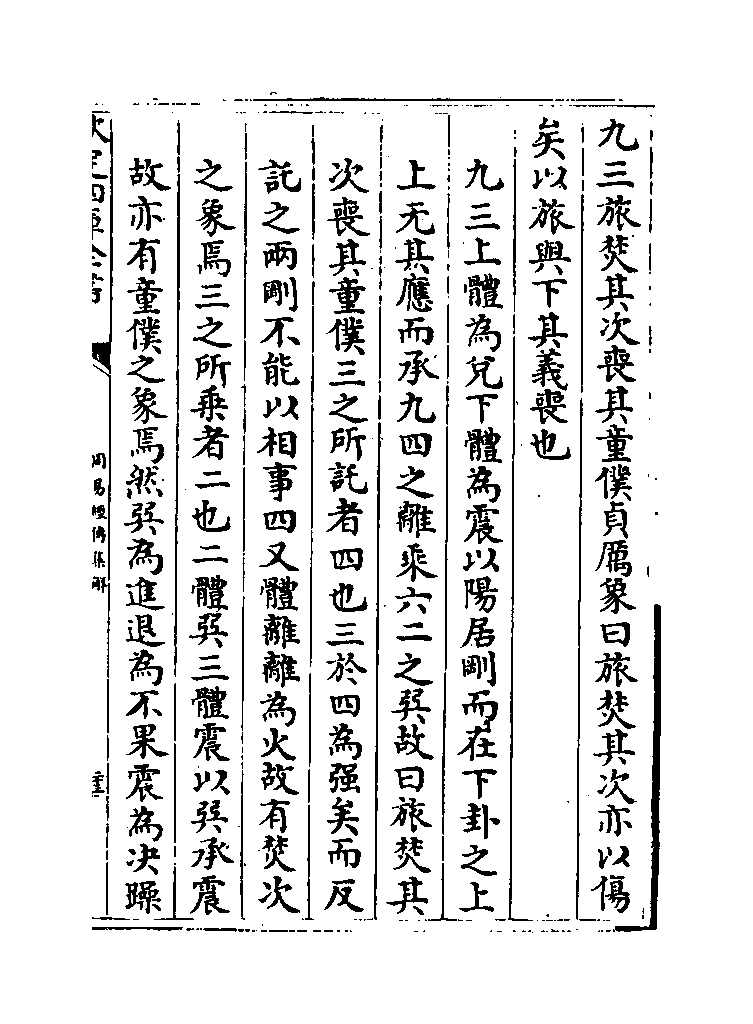 九三旅焚其次喪其童僕貞厲象曰旅焚其次亦以傷
矣以旅與下其義喪也
九三上體為兌下體為震以陽居剛而在下卦之上
上无其應而承九四之離乘六二之巽故曰旅焚其
次喪其童僕三之所託者四也三於四為强矣而反
託之兩剛不能以相事四又體離離為火故有焚次
之象焉三之所乗者二也二體巽三體震以巽承震
故亦有童僕之象焉然巽為進退為不果震為决躁
欽定四庫全書
周易經傳集解